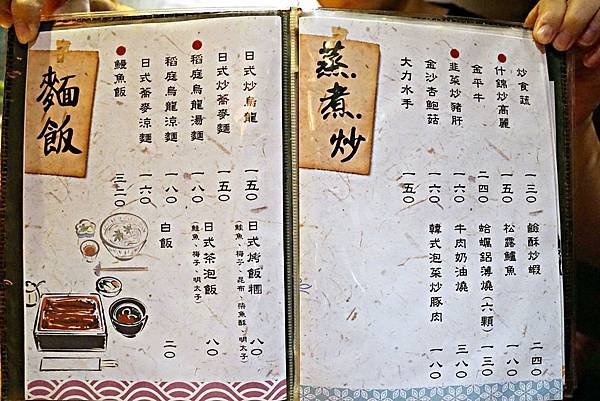 蒸煮炒
炒食蔬 一三〇
什錦炒高麗 一五〇
金平牛 二四〇
韭菜炒豬肝 一六〇
金沙杏鮑菇 一六〇
大力水手 一五〇
鹹酥炒蝦 二四〇
松露鱸魚 一八〇
蛤蠣鋁薄燒(六顆) 一三〇
牛肉奶油燒 三八〇
韓式泡菜炒豚肉 一八〇
麵飯
日式炒烏龍 一五〇
日式炒蕎麥麵 一五〇
稻庭烏龍湯麵 一八〇
稻庭烏龍涼麵 一八〇
日式蕎麥涼麵 一六〇
鰻魚飯 三二〇
日式烤飯糰 八〇
(鮭魚、梅子、昆布、柴魚酥、明太子)
日式茶泡飯 八〇
(鮭魚、梅子、明太子)
白飯 二〇